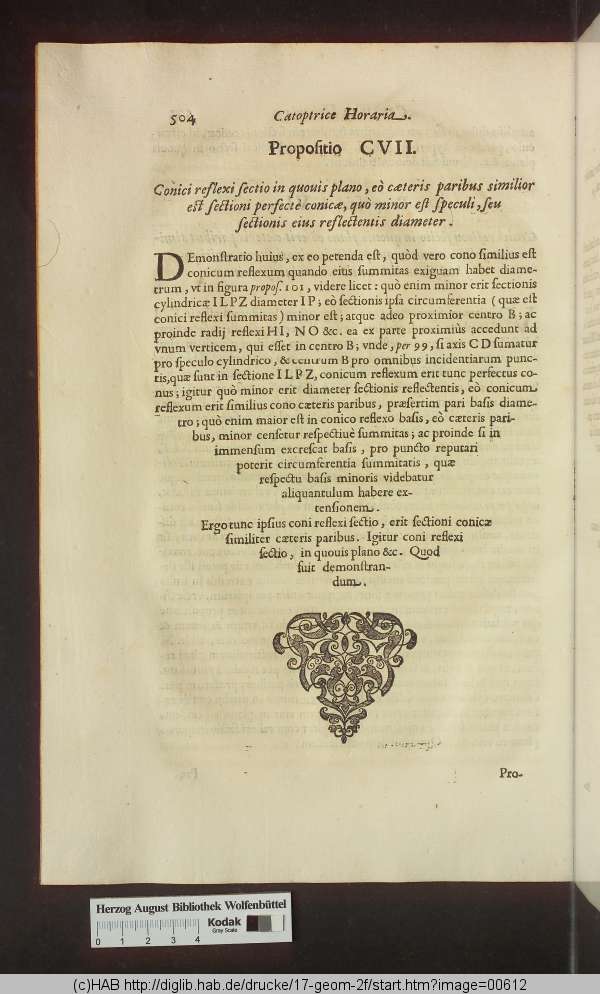 504 Catoptrice Horaria.
Propositio CVII.
Conici reflexi sectio in quouis plano, eò cæteris paribus similior
est sectioni perfectè conicæ, quò minor est speculi, seu
sectionis eius reflectentis diameter.
DEmonstratio huius, ex eo petenda est, quòd vero cono similius est
conicum reflexum quando eius summitas exiguam habet diame-
trum, vt in figura propos. 101, videre licet: quò enim minor erit sectionis
cylindricæ ILPZ diameter IP; eò sectionis ipsa circumferentia (quæ est
conici reflexi summitas) minor est; atque adeo proximior centro B; ac
proinde radij reflexi HI, NO &c. ea ex parte proximiùs accedunt ad
vnum verticem, qui esset in centro B; vnde, per 99, si axis CD sumatur
pro speculo cylindrico, & centrum B pro omnibus incidentiarum punc-
tis, quæ sunt in sectione ILPZ, conicum reflexum erit tunc perfectus co-
nus; igitur quò minor erit diameter sectionis reflectentis, eò conicum
reflexum erit similius cono cæteris paribus, præsertim pari basis diame-
tro; quò enim maior est in conico reflexo basis, eò cæteris pari-
bus, minor censetur respectiuè summitas; ac proinde si in
immensum excrescat basis, pro puncto reputari
poterit circumferentia summitatis, quæ
respectu basis minoris videbatur
aliquantulum habere ex-
tensionem.
Ergo tunc ipsius coni reflexi sectio, erit sectioni conicæ
similiter cæteris paribus. Igitur coni reflexi
sectio, in quouis plano &c. Quod
fuit demonstran-
dum.
Pro-
Herzog August Bibliothek Wolfenbüttel
Kodak
Gray Scale
0 1 2 3 4
(c)HAB http://diglib.hab.de/drucke/17-geom-2f/start.htm?image=00612